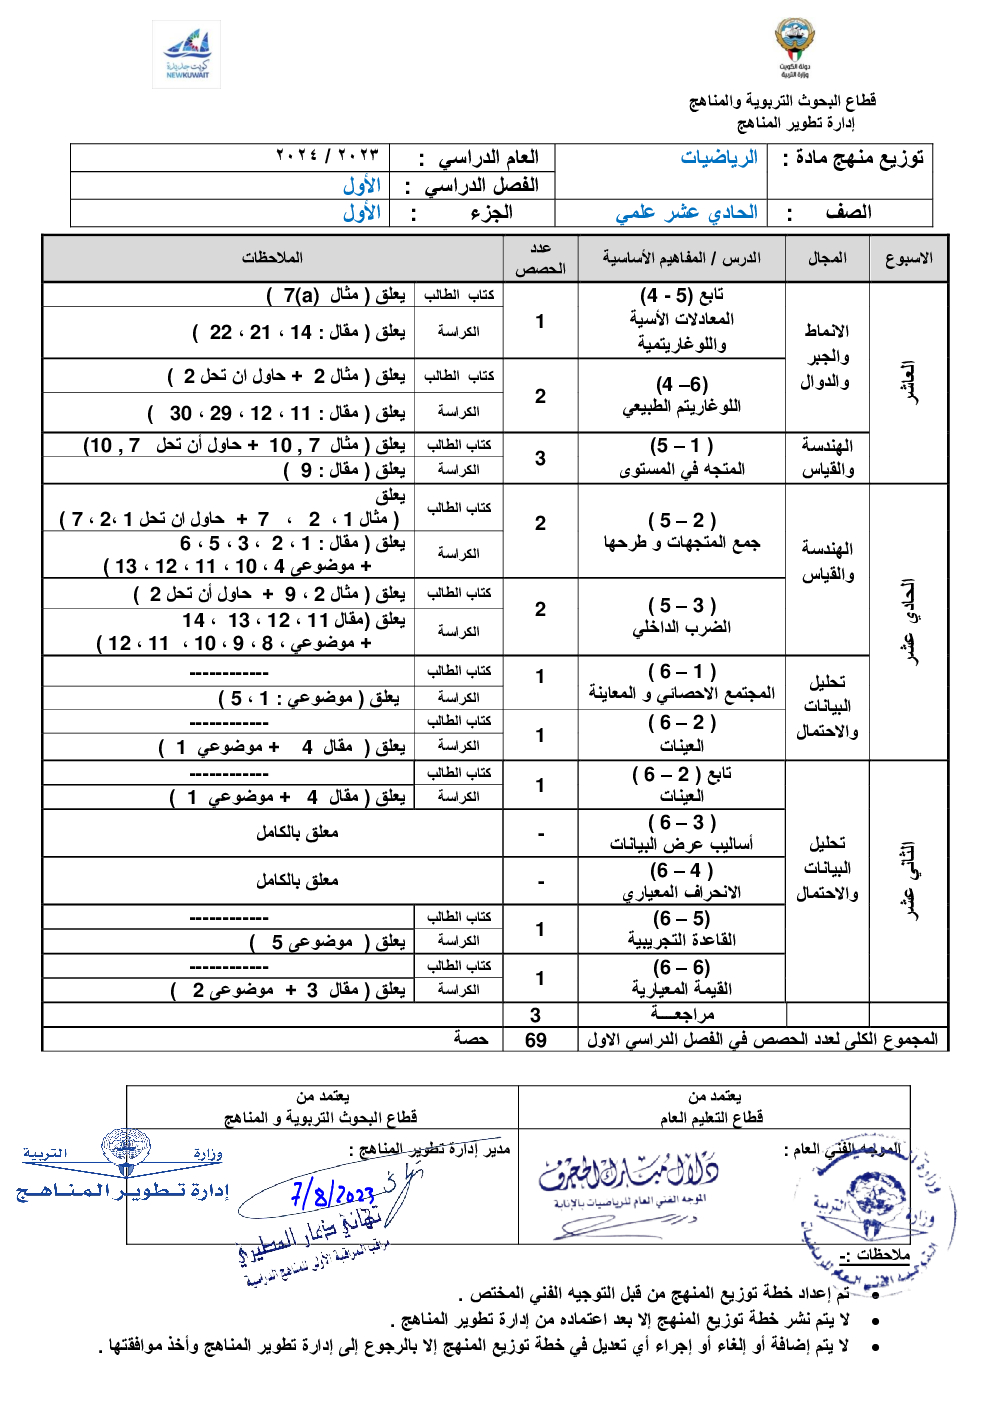 كويت جديدة
NEWKUWAIT
دولة الكويت
وزارة التربية
قطاع البحوث التربوية والمناهج
إدارة تطوير المناهج
توزيع منهج مادة : الرياضيات العام الدراسي : ٢٠٢٣ / ٢٠٢٤
الفصل الدراسي : الأول
الصف : الحادي عشر علمي الجزء : الأول
الاسبوع المجال الدرس / المفاهيم الأساسية عدد الحصص الملاحظات
العاشر
الانماط والجبر والدوال
تابع (5 - 4)
المعادلات الأسية
واللوغاريتمية
1
كتاب الطالب يعلق ( مثال 7(a) )
الكراسة يعلق ( مقال : 14 ، 21 ، 22 )
(6– 4)
اللوغاريتم الطبيعي
2
كتاب الطالب يعلق ( مثال 2 + حاول ان تحل 2 )
الكراسة يعلق ( مقال : 11 ، 12 ، 29 ، 30 )
الهندسة والقياس
( 1 – 5)
المتجه في المستوى
3
كتاب الطالب يعلق ( مثال 7 , 10 + حاول أن تحل 7 , 10)
الكراسة يعلق ( مقال : 9 )
الحادي عشر
الهندسة والقياس
( 2 – 5 )
جمع المتجهات و طرحها
2
كتاب الطالب يعلق
( مثال 1 ، 2 ، 7 + حاول ان تحل 1 ،2 ، 7 )
الكراسة يعلق ( مقال : 1 ، 2 ، 3 ، 5 ، 6
+ موضوعي 4 ، 10 ، 11 ، 12 ، 13 )
( 3 – 5 )
الضرب الداخلي
2
كتاب الطالب يعلق ( مثال 2 ، 9 + حاول أن تحل 2 )
الكراسة يعلق (مقال 11 ، 12 ، 13 ، 14
+ موضوعي ، 8 ، 9 ، 10 ، 11 ، 12 )
تحليل البيانات والاحتمال
( 1 – 6 )
المجتمع الاحصائي و المعاينة
1
كتاب الطالب ------------
الكراسة يعلق ( موضوعي : 1 ، 5 )
( 2 – 6 )
العينات
1
كتاب الطالب ------------
الكراسة يعلق ( مقال 4 + موضوعي 1 )
الثاني عشر
تحليل البيانات والاحتمال
تابع ( 2 – 6 )
العينات
1
كتاب الطالب ------------
الكراسة يعلق ( مقال 4 + موضوعي 1 )
( 3 – 6 )
أساليب عرض البيانات
-
معلق بالكامل
( 4 – 6)
الانحراف المعياري
-
معلق بالكامل
(5 – 6)
القاعدة التجريبية
1
كتاب الطالب ------------
الكراسة يعلق ( موضوعي 5 )
(6 – 6)
القيمة المعيارية
1
كتاب الطالب ------------
الكراسة يعلق ( مقال 3 + موضوعي 2 )
مراجعـــة 3
المجموع الكلي لعدد الحصص في الفصل الدراسي الاول 69 حصة
يعتمد من
قطاع التعليم العام
يعتمد من
قطاع البحوث التربوية و المناهج
الموجه الفني العام :
مدير إدارة تطوير المناهج :
الموجه الفني العام للرياضيات بالإنابة
وزارة التربية
إدارة تطوير المناهج
7/8/2023
تهاني ذعار المطيري
مراقب المراقبة الأولى للمناهج الدراسية
ملاحظات :-
• تم إعداد خطة توزيع المنهج من قبل التوجيه الفني المختص .
• لا يتم نشر خطة توزيع المنهج إلا بعد اعتماده من إدارة تطوير المناهج .
• لا يتم إضافة أو إلغاء أو إجراء أي تعديل في خطة توزيع المنهج إلا بالرجوع إلى إدارة تطوير المناهج وأخذ موافقتها .